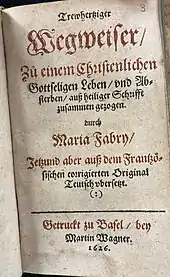 3
Trewhertziger
Wegweiser/
Zů einem Christenlichen
Gottseligen Leben/ vnd Ab-
sterben/ auß heiliger Schrifft
zusammen gezogen.
durch
Maria Fabry/
Jetzund aber auß dem Frantzö-
sischen corrigierten Original
Teutsch vbersetzt.
(:)
Getruckt zu Basel/ bey
Martin Wagner.
1626.